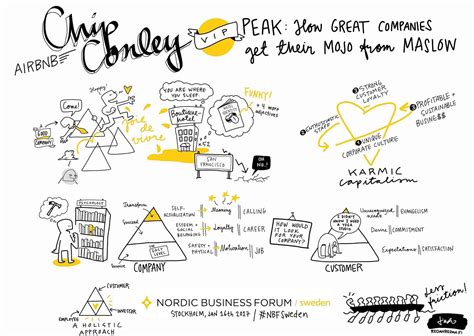 Chip Conley
AIRBNB
VIP
PEAK: How GREAT COMPANIES
get their MOJO from MASLOW
Come!
GOOD
COMPANY
Happy
joie
de
vivre
YOU ARE WHERE
YOU SLEEP
Boutique-
hotel
x 52
FUNKY!
+ 4 more
adjectives
SAN
FRANCISCO
OH NO!
② STRONG
CUSTOMER
LOYALTY
③ PROFITABLE +
SUSTAINABLE
BUSINE$$
① UNIQUE
CORPORATE CULTURE
KARMIC
capitalism
PSYCHOLOGY
Transform
Succeed
SELF-
ACTUALIZATION
ESTEEM +
SOCIAL
BELONGING
SAFETY +
PHYSICAL
Meaning
Loyalty
Motivation
CALLING
CAREER
JOB
COMPANY
HOW WOULD
IT LOOK
FOR YOUR
COMPANY?
CUSTOMER
Unrecognized
needs
EVANGELISM
Desires
COMMITMENT
Expectations
SATISFACTION
INVESTOR
EMPLOYEE
A HOLISTIC
APPROACH
NORDIC BUSINESS FORUM / sweden
STOCKHOLM, JAN 26th 2017 / #NBFSweden
Less
friction!